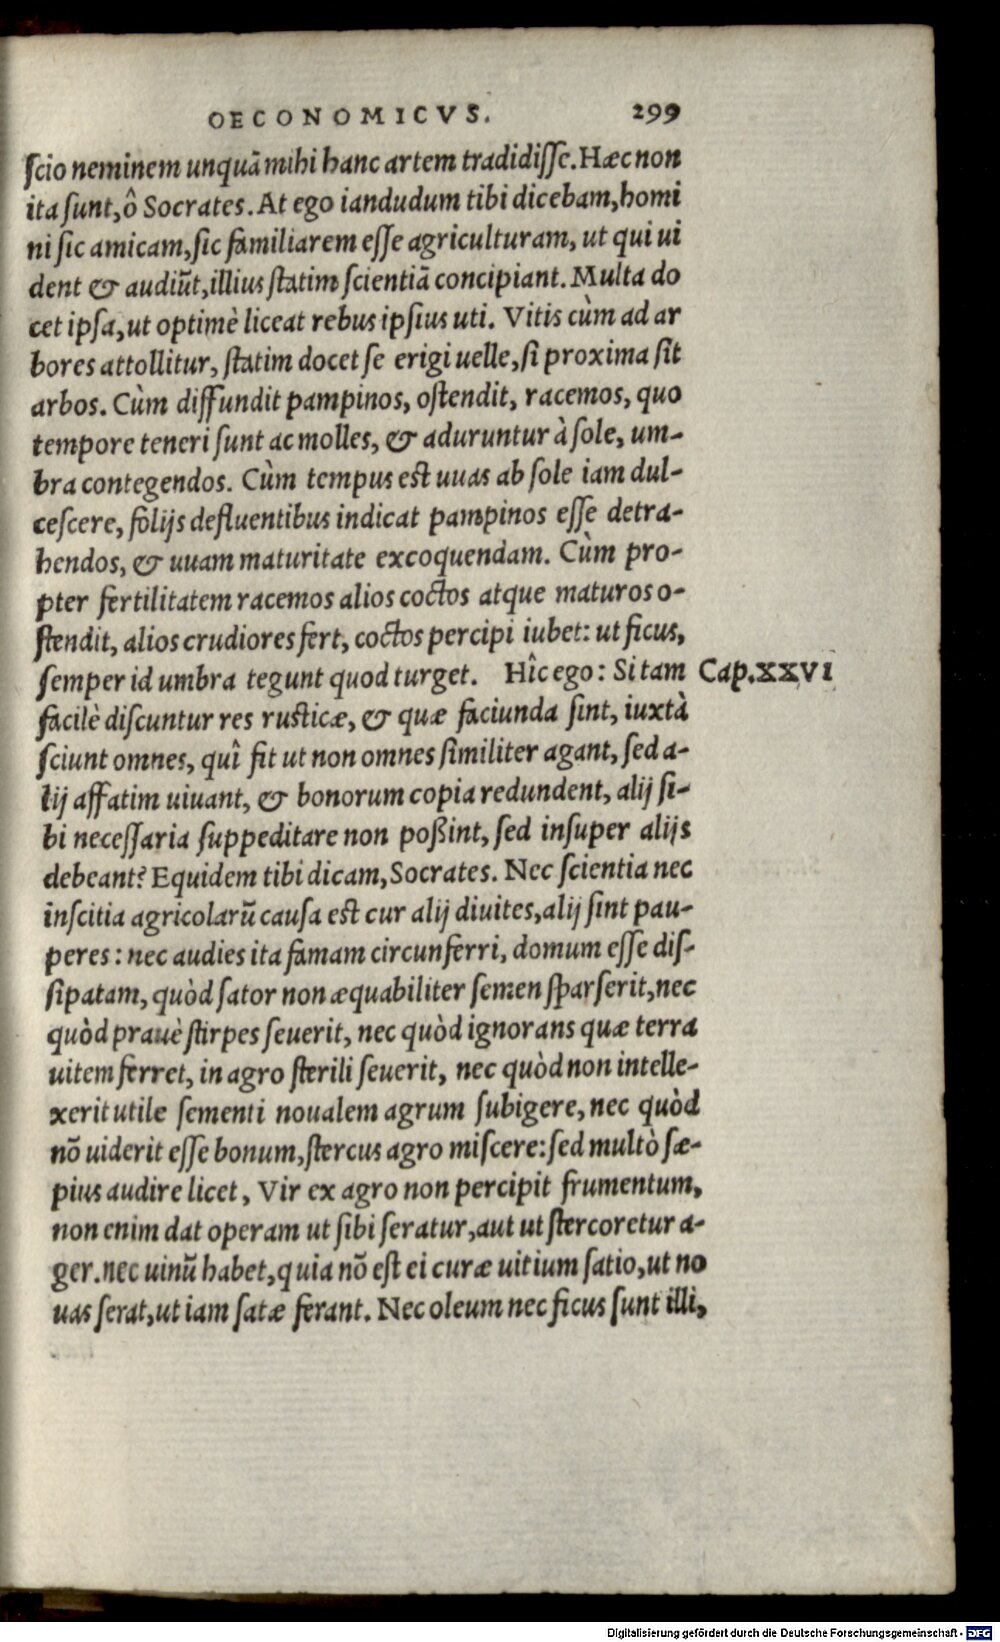 OECONOMICVS. 299
ſcio neminem unquā mihi hanc artem tradidiſſe. Hæc non
ita ſunt, ô Socrates. At ego iandudum tibi dicebam, homi
ni ſic amicam, ſic familiarem eſſe agriculturam, ut qui ui
dent & audiūt, illius ſtatim ſcientiā concipiant. Multa do
cet ipſa, ut optimè liceat rebus ipſius uti. Vitis cùm ad ar
bores attollitur, ſtatim docet ſe erigi uelle, ſi proxima ſit
arbos. Cùm diffundit pampinos, oſtendit, racemos, quo
tempore teneri ſunt ac molles, & aduruntur à ſole, um-
bra contegendos. Cùm tempus eſt uuas ab ſole iam dul-
ceſcere, folijs defluentibus indicat pampinos eſſe detra-
hendos, & uuam maturitate excoquendam. Cùm pro-
pter fertilitatem racemos alios coctos atque maturos o-
ſtendit, alios crudiores fert, coctos percipi iubet: ut ficus,
ſemper id umbra tegunt quod turget. Hîc ego: Si tam Cap. XXVI
facilè diſcuntur res ruſticæ, & quæ faciunda ſint, iuxtà
ſciunt omnes, quî fit ut non omnes ſimiliter agant, ſed a-
lij affatim uiuant, & bonorum copia redundent, alij ſi-
bi neceſſaria ſuppeditare non poßint, ſed inſuper alijs
debeant? Equidem tibi dicam, Socrates. Nec ſcientia nec
inſcitia agricolarū cauſa eſt cur alij diuites, alij ſint pau-
peres: nec audies ita famam circunferri, domum eſſe diſ-
ſipatam, quòd ſator non æquabiliter ſemen ſparſerit, nec
quòd prauè ſtirpes ſeuerit, nec quòd ignorans quæ terra
uitem ferret, in agro ſterili ſeuerit, nec quòd non intelle-
xerit utile ſementi noualem agrum ſubigere, nec quòd
nō uiderit eſſe bonum, ſtercus agro miſcere: ſed multò ſæ-
pius audire licet, Vir ex agro non percipit frumentum,
non enim dat operam ut ſibi ſeratur, aut ut ſtercoretur a-
ger. nec uinū habet, quia nō eſt ei curæ uitium ſatio, ut no
uas ſerat, ut iam ſatæ ferant. Nec oleum nec ficus ſunt illi,
Digitalisierung gefördert durch die Deutsche Forschungsgemeinschaft - DFG